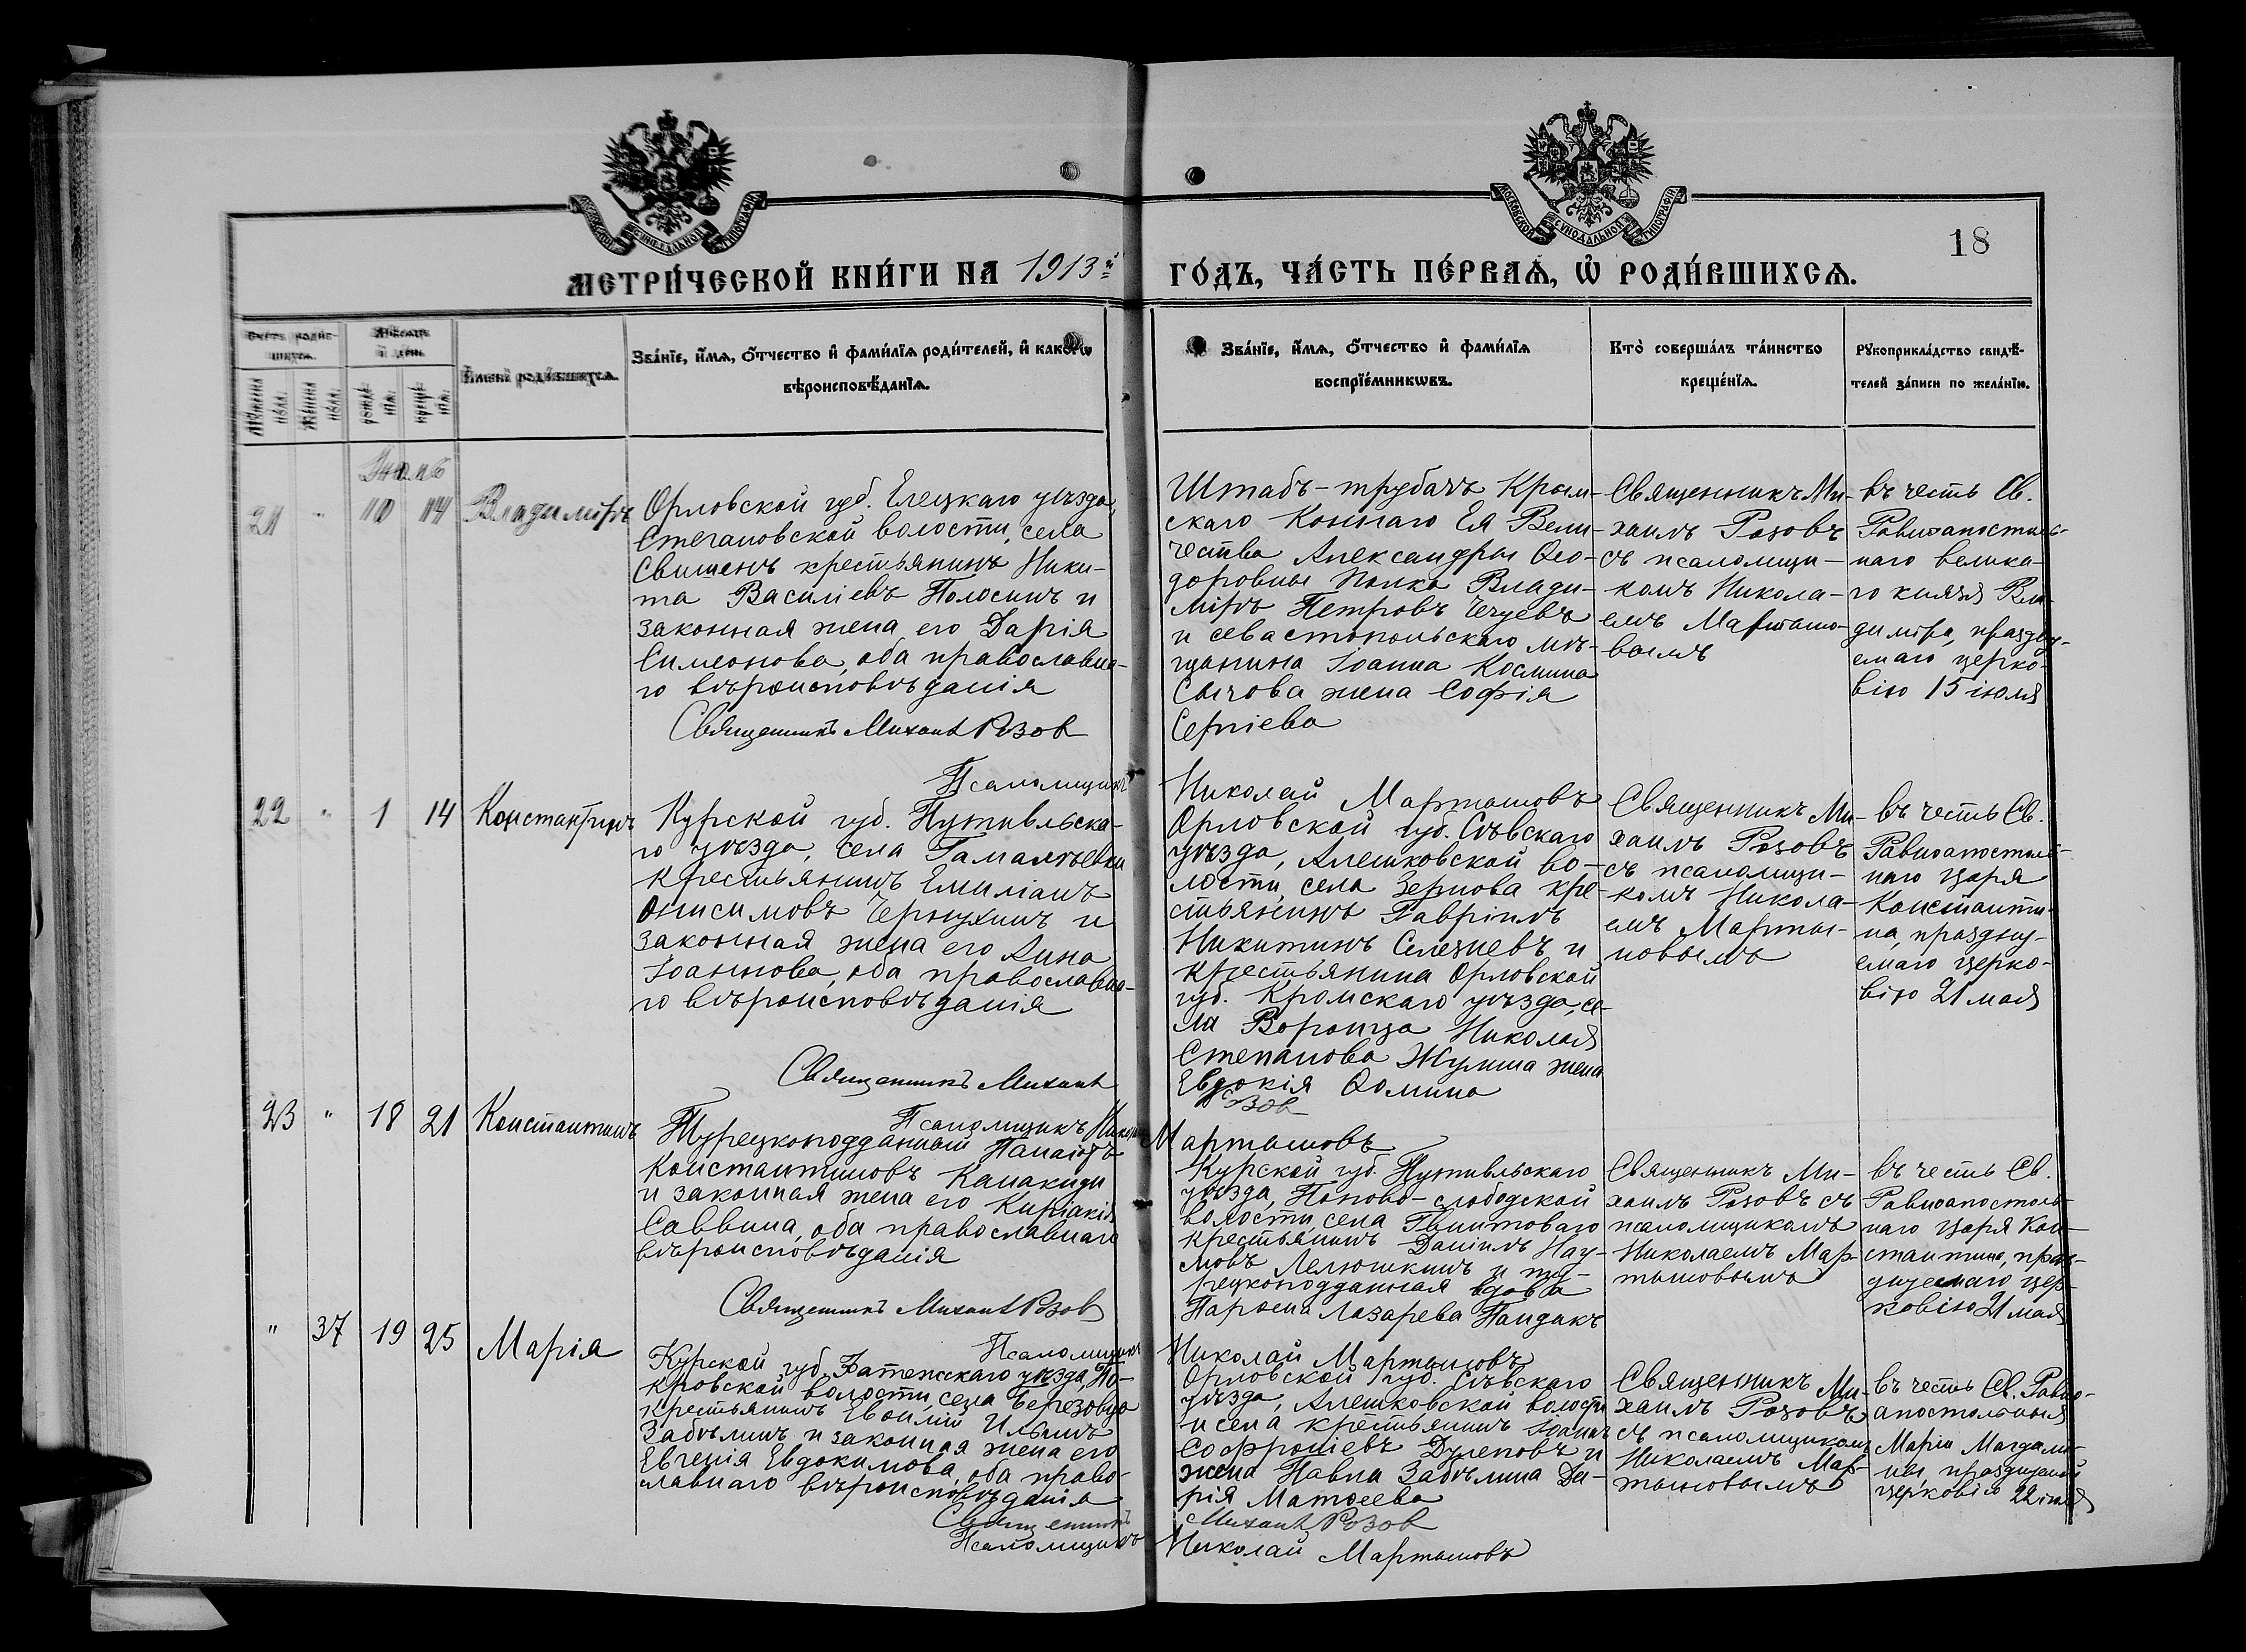 18
МЕТРИ́ЧЕСКОЙ КНИ́ГИ НА 1913й ГО́ДЪ, ЧА́СТЬ ПЕ́РВАѦ, Ѡ҆ РОДИ́ВШИХСѦ.
Мѣсяцъ
и день
Зва́нїе, и҆́мѧ, ѻ҆́тчество и҆ фамı́лїѧ роди́телей, и҆ како́гѡ
вѣроисповѣ́данїѧ.
Зва́нїе, и҆́мѧ, ѻ҆́тчество и҆ фамı́лїѧ
воспрїе́мникѡвъ.
Кто̀ соверша́лъ та́инство
креще́нїѧ.
Рꙋкоприкла́дство свидѣ́-
телей за́писи по жела́нїю.
Іюль
21 " 10 14 Владиміръ
Орловской губ. Елецкаго уѣзда,
Стегаловской волости, села
Свишенъ крестьянинъ Ники-
та Василіевъ Полосинъ и
законная жена его Дарія
Симеонова, оба православна-
го вѣроисповѣданія
Священникъ Михаилъ Розов
Штабъ-трубачъ Крым-
скаго Коннаго Ея Вели-
чества Александры Ѳео-
доровны Полка Влади-
міръ Петровъ Чечуевъ
и севастопольскаго мѣ-
щанина Іоанна Космина
Сычова жена Софія
Сергіева
Священникъ Ми-
хаилъ Розовъ
съ псаломщи-
комъ Никола-
емъ Мартыно-
вымъ
въ честь Св.
Равноапостоль-
наго велика-
го князя Вла-
диміра, праздну-
емаго церко-
вію 15 іюля
Псаломщикъ Николай Мартыновъ
22 " 1 14 Константинъ
Курской губ. Путивльска-
го уѣзда, села Гамалѣевки
крестьянинъ Емиліанъ
Онисимовъ Чернухинъ и
законная жена его Анна
Іоаннова, оба православна-
го вѣроисповѣданія
Священникъ Михаилъ Розов
Орловской губ. Сѣвскаго
уѣзда, Алешковской во-
лости, села Зернова кре-
стьянинъ Гавріилъ
Никитинъ Селезневъ и
крестьянина Орловской
губ. Кромскаго уѣзда, се-
ла Воронца Николая
Степанова Жулина жена
Евдокія Ѳомина
Священникъ Ми-
хаилъ Розовъ
съ псаломщи-
комъ Никола-
емъ Марты-
новымъ
въ честь Св.
Равноапостоль-
наго царя
Константи-
на, праздну-
емаго церко-
вію 21 мая
Псаломщикъ Николай Мартыновъ
23 " 18 21 Константинъ
Турецкоподданный Панаіотъ
Константиновъ Канакиди
и законная жена его Киріакія
Саввина, оба православнаго
вѣроисповѣданія
Священникъ Михаилъ Розов
Курской губ. Путивльскаго
уѣзда, Попово-слободской
волости, села Гвинтоваго
крестьянинъ Даніилъ Нау-
мовъ Лелюшкинъ и ту-
рецкоподданная вдова
Парѳена Лазарева Пандакъ
Священникъ Ми-
хаилъ Розовъ съ
псаломщикомъ
Николаемъ Мар-
тыновымъ
въ честь Св.
Равноапостоль-
наго царя Кон-
стантина, праз-
днуемаго цер-
ковію 21 мая
Псаломщикъ Николай Мартыновъ
" 37 19 25 Марія
Курской губ. Фатежскаго уѣзда, По-
кровской волости, села Березовца
крестьянинъ Евѳимій Ильинъ
Забѣлинъ и законная жена его
Евгенія Евдокимова, оба право-
славнаго вѣроисповѣданія
Орловской губ. Сѣвскаго
уѣзда, Алешковской волости
и села крестьянинъ Іоаннъ
Софроніевъ Дулеповъ и
жена Павла Забѣлина Да-
рія Матѳеева
Священникъ Ми-
хаилъ Розовъ
съ псаломщикомъ
Николаемъ Мар-
тыновымъ
въ честь Св. Равно-
апостольныя
Маріи Магдали-
ны, празднуемой
церковію 22 іюля
Священникъ Михаилъ Розов
Псаломщикъ Николай Мартыновъ